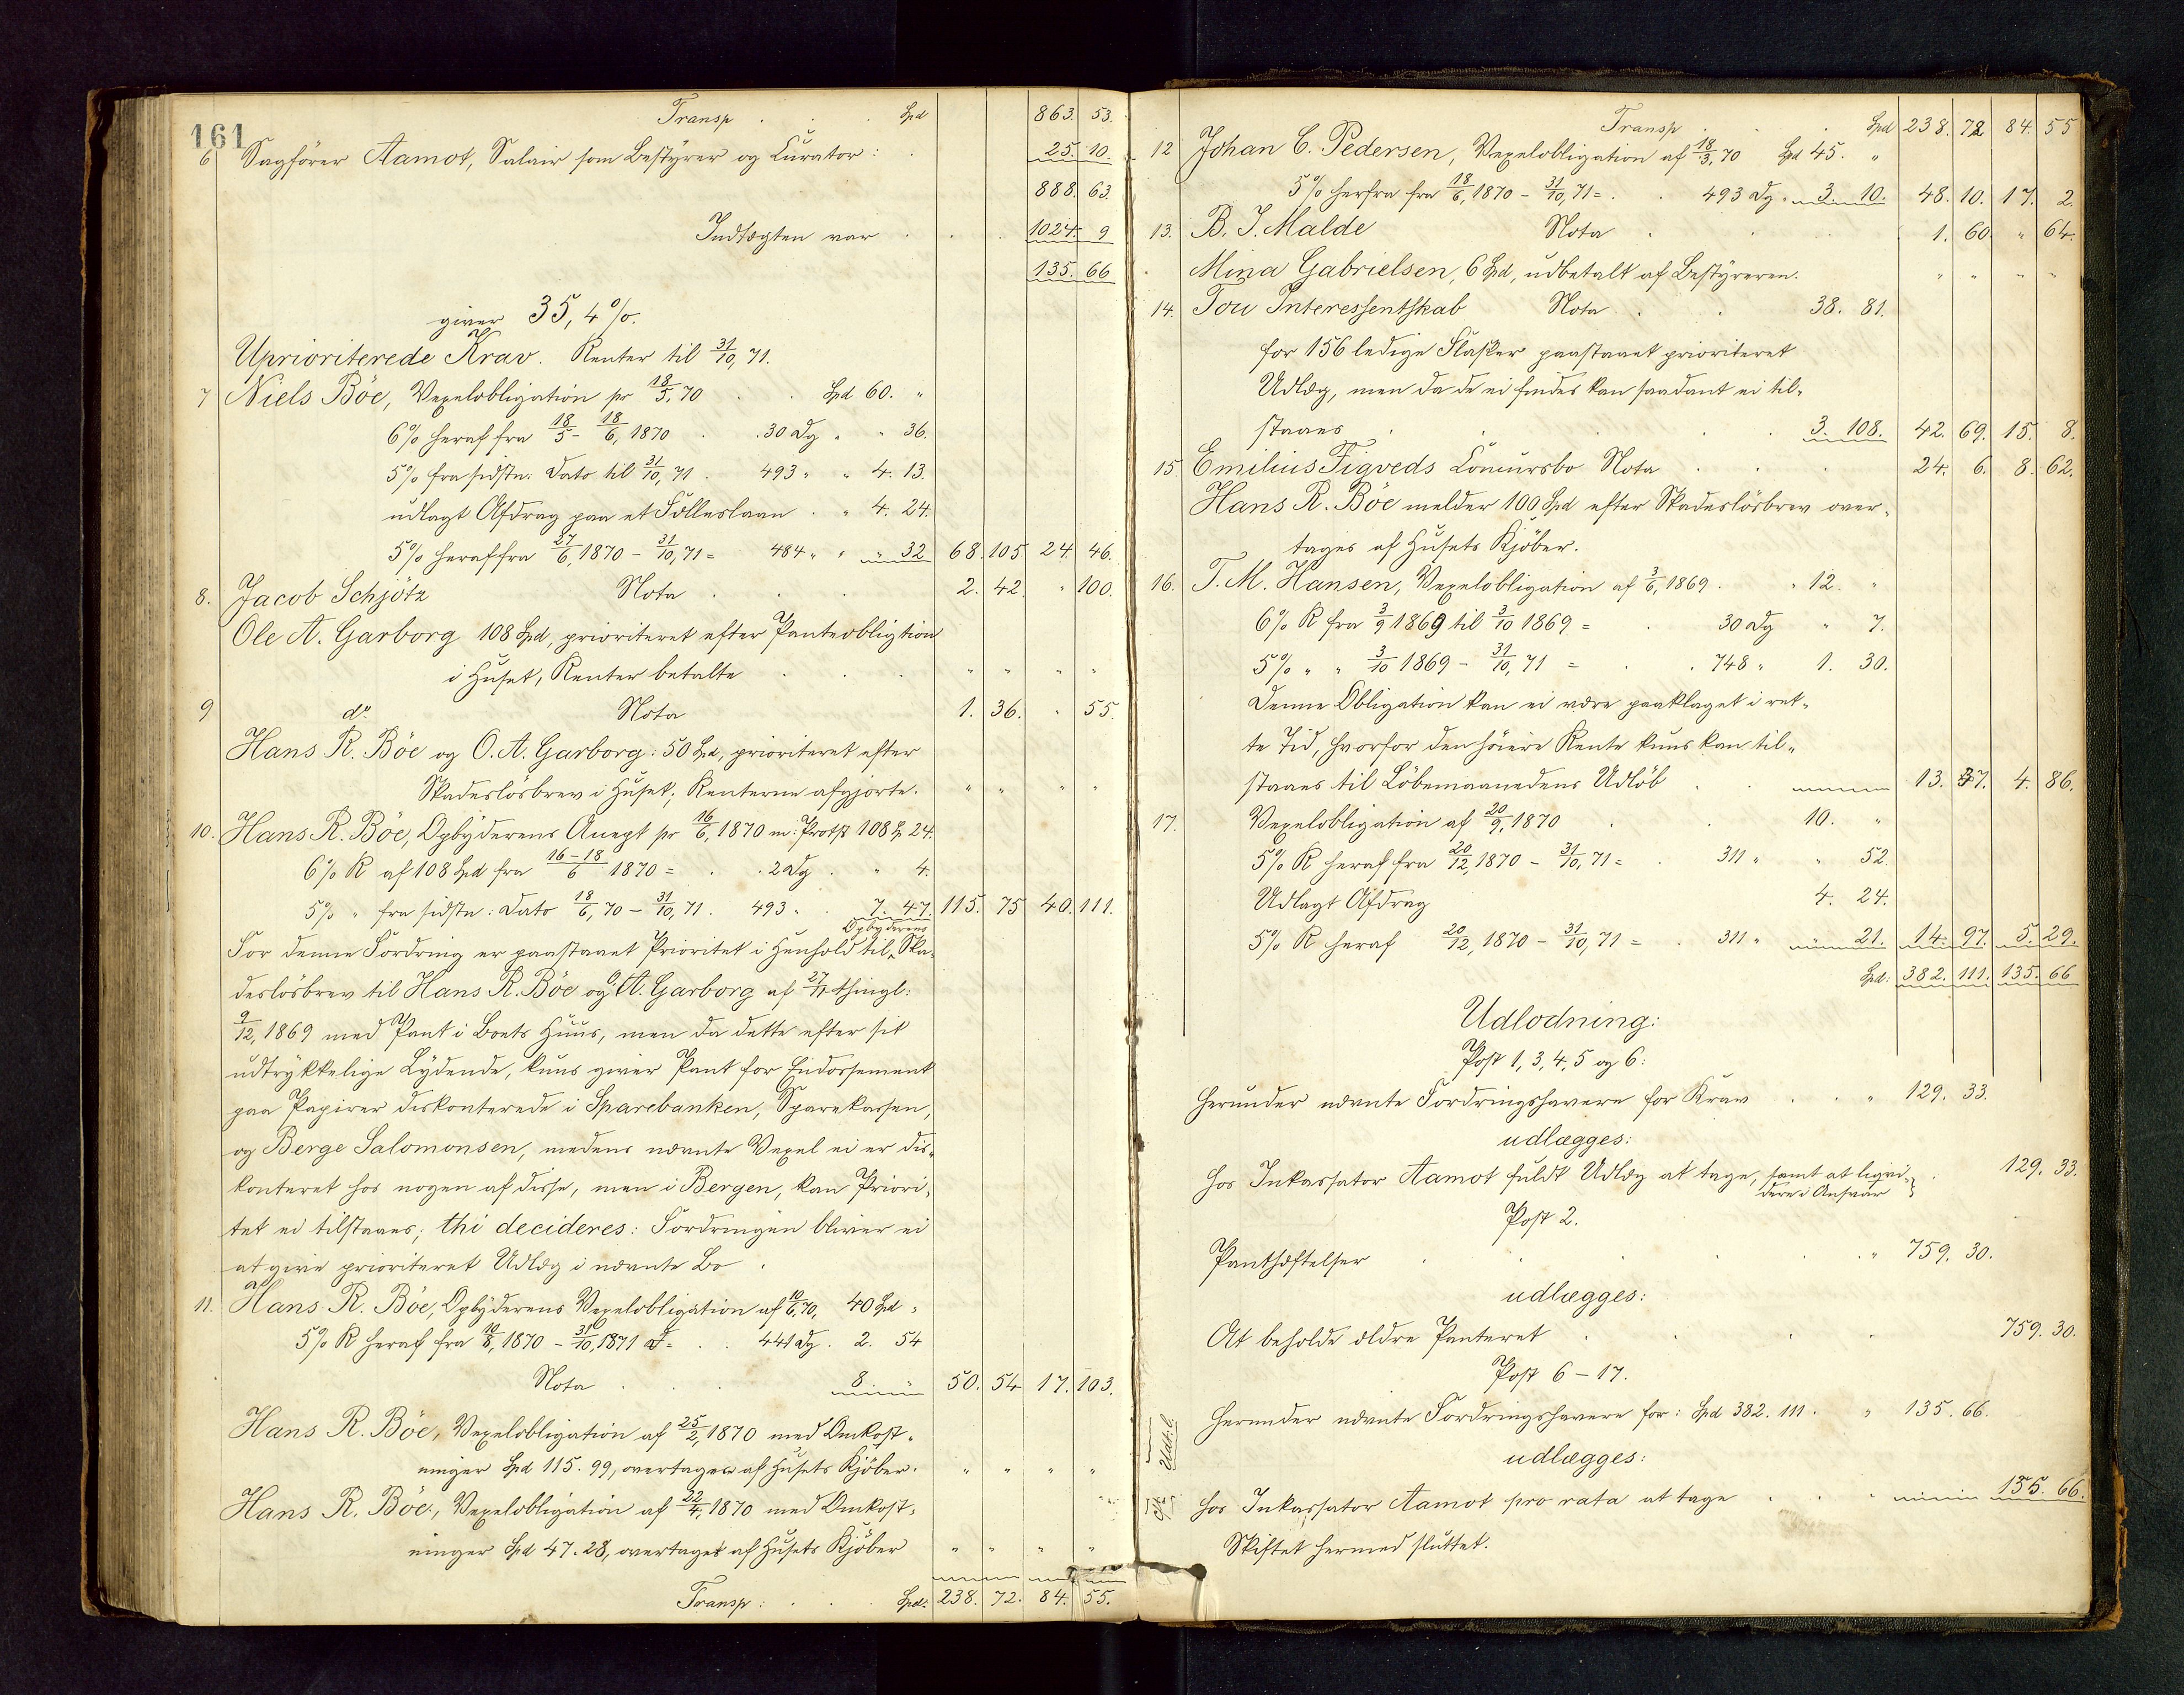 161
Transp . . . Spd 863. 53.
6 Sagförer Aamot, Salair som Bestyrer og Curator: . 25. 10.
888. 63.
Indtægten var . . . 1024. 9
135. 66
giver 35,4 %.
Uprioriterede Krav. Renter til 31/10, 71.
7 Niels Böe, Vexelobligation pr 18/5, 70 . . Spd 60. "
6% heraf fra 18/5 - 18/6, 1870 . . 30 Dg " " 36.
5% fra sidstn: Dato til 31/10, 71 . 493 " " 4. 13.
udlagt Afdrag paa et Fælleslaan . " 4. 24.
5% heraf fra 27/6, 1870 - 31/10, 71 = 484 " " " 32 68. 105. 24. 46.
8. Jacob Schjötz Nota . . . 2. 42. " 100.
Ole A. Garborg 108 Spd, prioriteret efter Panteobligtion
i Huset, Renter betalte . . . " " " "
9 do. Nota 1. 36. " 55.
Hans R. Böe og O. A. Garborg: 50 Spd, prioriteret efter
Skadeslösbrev i Huset; Renterne afgjorte. " " " "
10. Hans R. Böe, Opbyderens Accept pr 16/6, 1870 m: Protst 108 Sp 24.
6% R af 108 Spd fra 16-18/6 1870 = . . 2 Dg . " 4.
5% " fra sidstn: Dato 18/6, 70 - 31/10, 71. 493 " . 7. 47. 115. 75 40. 111.
Opbyderens
For denne Fordring er paastaaet Prioritet i Henhold til Ska-
deslösbrev til Hans R. Böe og O. A. Garborg af 27/11 thingl:
9/12, 1869 med Pant i Boets Huus, men da dette efter sit
udtrykkelige Lydende, kuns giver Pant for Endossement
paa Papirer diskonterede i Sparebanken, Sparekassen,
og Berge Salomonsen, medens nævnte Vexel ei er dis-
konteret hos nogen af disse, men i Bergen, kan Priori-
tet ei tilstaaes; thi decideres: Fordringen bliver ei
at give prioriteret Udlæg i nævnte Bo .
11. Hans R. Böe, Opbyderens Vexelobligation af 10/6, 70, 40 Spd "
5% R heraf fra 10/8, 1870 - 31/10, 1871 = . . 441 Dg . 2. 54
Nota . . . 8 " 50. 54 17. 103.
Hans R. Böe, Vexelobligation af 25/2, 1870 med Omkost-
ninger Spd 115. 99, overtages af Husets Kjöber. " " " "
Hans R. Böe, Vexelobligation af 22/4, 1870 med Omkost-
ninger Spd 47. 28, overtages af Husets Kjöber " " " "
Transp: . . . Spd. 238. 72. 84. 55.
Transp . . . Spd 238. 72 84. 55
12 Johan C. Pedersen, Vexelobligation af 18/3, 70 Spd 45. "
5% herfra fra 18/6, 1870 - 31/10, 71 = . . 493 Dg " 3. 10. 48. 10. 17. 2.
13. B. J. Malde Nota . . . 1. 60. " 64.
Mina Gabrielsen, 6 Spd, udbetalt af Bestyreren. " " " "
14. Tou Interessentskab Nota . . 38. 81.
for 156 ledige Flasker paastaaet prioriteret
Udlæg, men da de ei findes kan saadant ei til-
staaes . . . 3. 108. 42. 69. 15. 8.
15. Emilius Figveds Concursbo Nota . . . 24. 6. 8. 62.
Hans R. Böe melder 100 Spd efter Skadeslösbrev over-
tages af Husets Kjöber.
16. T. M. Hansen, Vexelobligation af 3/6, 1869 . " 12. "
6% R fra 3/9 1869 til 3/10 1869 = . 30 Dg " 7.
5% " " 3/10 1869 - 31/10, 71 = . . 748 " 1. 30.
Denne Obligation kan ei være paaklaget i ret-
te Tid, hvorfor den höiere Rente kuns kan til-
staaes til Löbemaanedens Udlöb . . 13. 37. 4. 86.
17. Vexelobligation af 20/9, 1870 . . 10. "
5% R heraf fra 20/12, 1870 - 31/10, 71 = . 311 " " 52.
Udlagt Afdrag 4. 24.
5% R heraf 20/12, 1870 - 31/10, 71 = . 311 " 21. 14. 97. 5. 29.
Spd: 382. 111. 135. 66
Udlodning:
Post 1, 3, 4, 5 og 6:
Herunder nævnte Fordringshavere for Krav . . " 129. 33.
udlægges:
hos Inkassator Aamot fuldt Udlæg at tage, samt at liqvi-
dere i Ansvar . 129. 33.
Post 2.
Panthæftelser . . . " 759. 30.
udlægges:
At beholde ældre Panteret . . . 759. 30.
Post 6 - 17.
Herunder nævnte Fordringshavere for: Spd 382. 111. " 135. 66.
udlægges:
Udt: C.
hos Inkassator Aamot pro rata at tage . . . 135. 66.
Skiftet hermed sluttet.